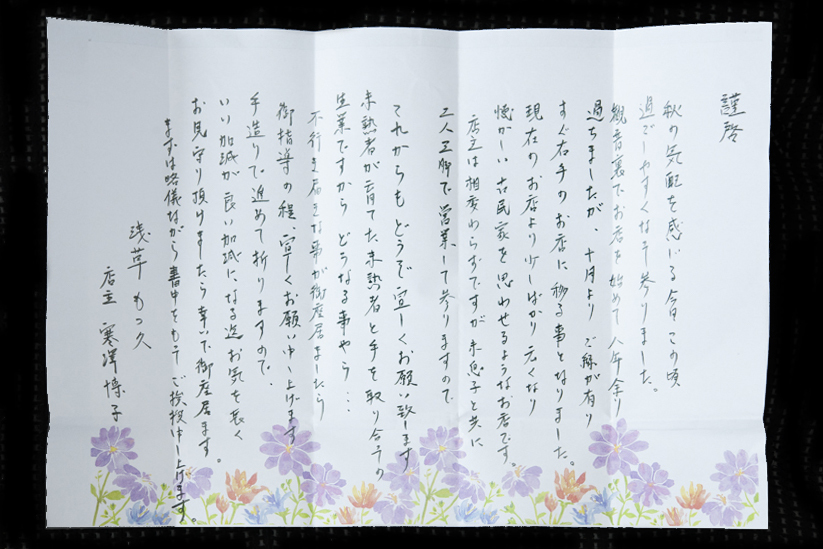 謹啓
秋の気配を感じる今日この頃
過ごしやすくなって参りました。
観音裏でお店を始めて八年余り
過ちましたが、十月より ご縁が有り
すぐ右手のお店に移る事となりました。
現在のお店より少しばかり広くなり
懐かしい古民家を思わせるようなお店です。
店主は相変わらずですが未息子と共に
二人三脚で営業して参りますので
これからもどうぞ宜しくお願い致します
未熟者が育てた未熟者と手を取り合うの
生業ですから どうなる事やら…
不行き届きな事が御座居ましたら
御指導の程、宜しくお願い申し上げます
手造りで進めて折りますので、
いい加減が良い加減になる迄お気を長く
お見守り頂けましたら幸いで御座居ます。
まずは略儀ながら書中をもって ご挨拶申し上げます。
浅草 もつ久
店主 寒澤博子